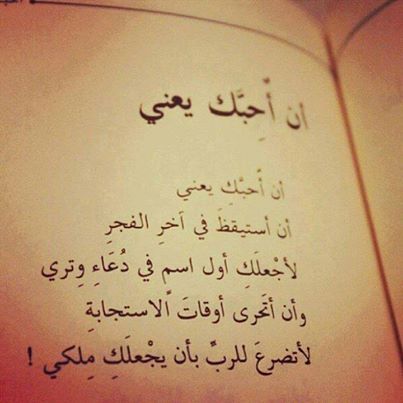 ان أُحِبَّك يعني
ان أُحبَّكِ يعني
أن أستيقظَ في آخرِ الفجرِ
لأجْعلَكِ أول اسمٍ في دُعَاءِ وِتري
وأن أتَحرى أوقاتَ الاستجابةِ
لأتضرعَ للربِّ بأن يجْعلَكِ مِلكي !